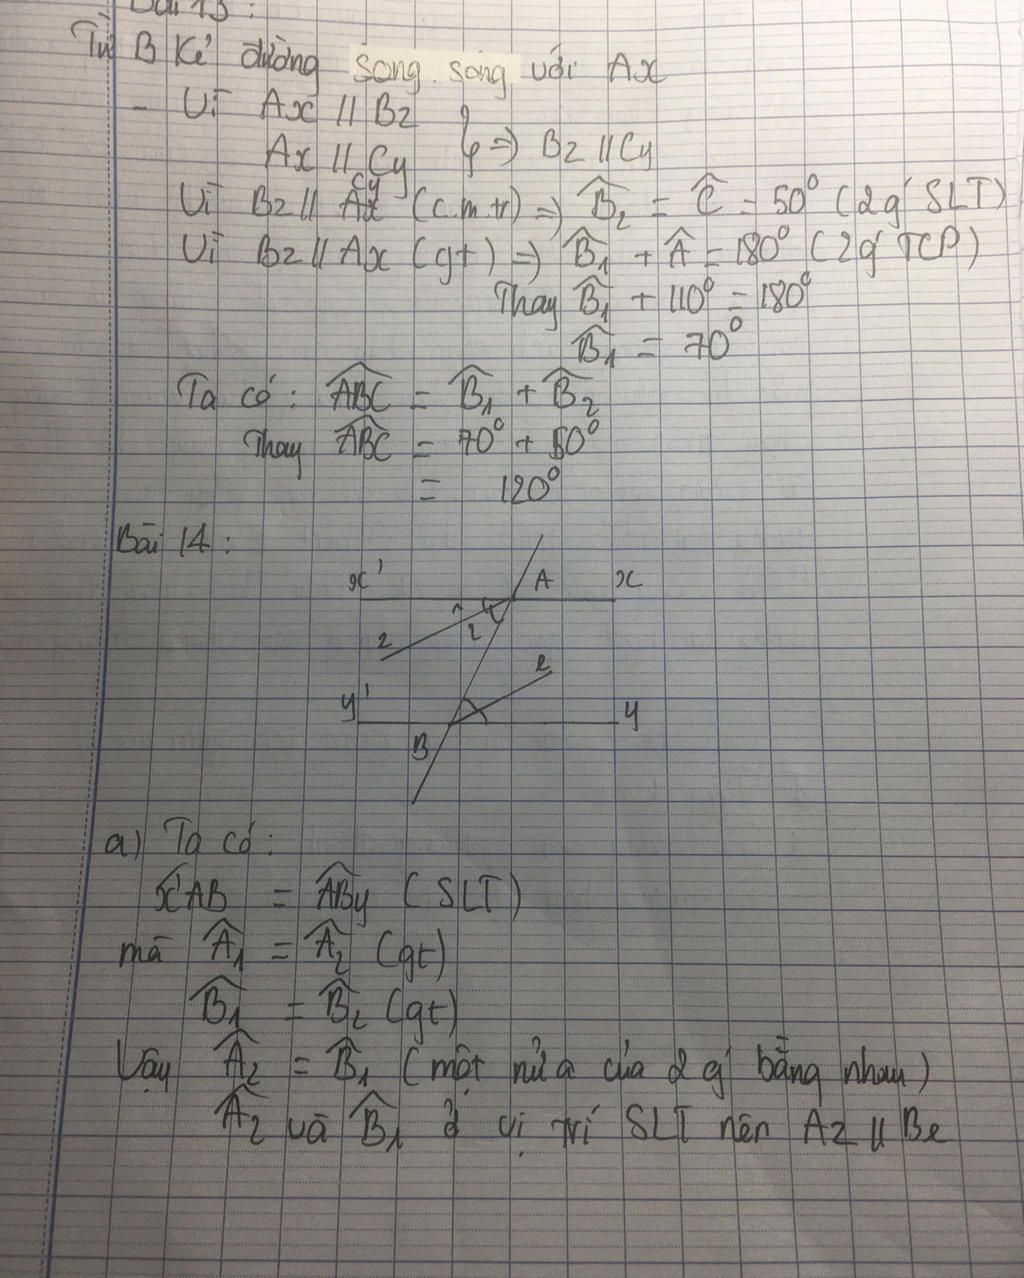 Bài 13:
Từ B Kẻ đường song song với Ax
- Vì Ax // Bz
Ax // Cy } => Bz // Cy
Vì Bz // Cy (c.m.tr) => B̂₂ = Ĉ = 50° (2 góc SLT)
Vì Bz // Ax (gt) => B̂₁ + Â = 180° (2 góc TCP)
Thay B̂₁ + 110° = 180°
B̂₁ = 70°
Ta có: ABC = B̂₁ + B̂₂
Thay ABC = 70° + 50°
= 120°
Bài 14:
x' A x
1
z 2
e
y' y
B
a) Ta có:
x'AB = ABy (SLT)
mà Â₁ = Â₂ (gt)
B̂₁ = B̂₂ (gt)
Vậy Â₂ = B̂₁ (một nửa của 2 góc bằng nhau)
Â₂ và B̂₁ ở vị trí SLT nên Az // Be